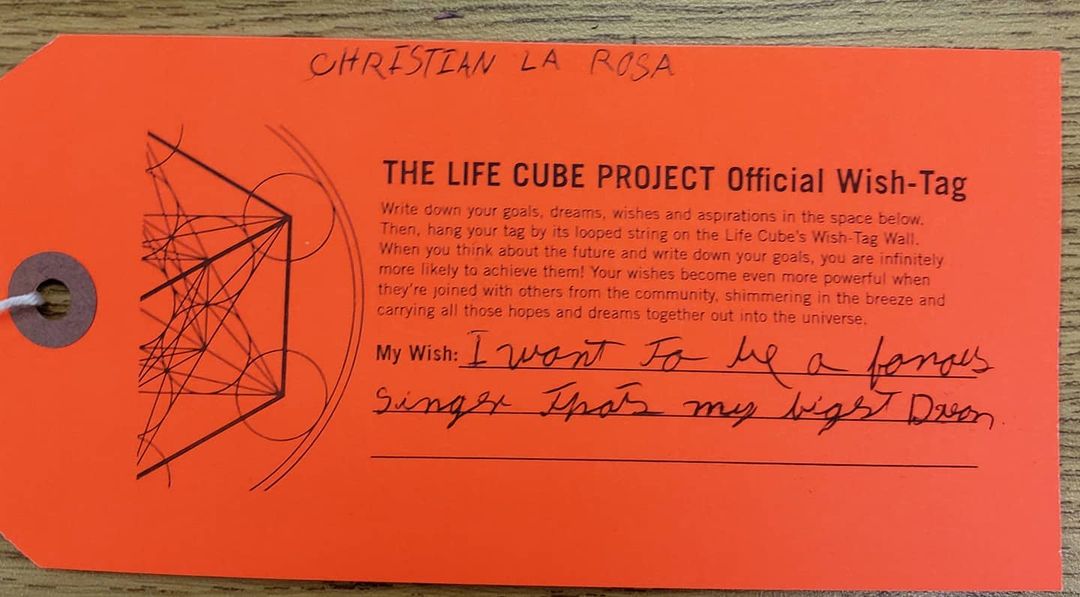 CHRISTIAN LA ROSA
THE LIFE CUBE PROJECT Official Wish-Tag
Write down your goals, dreams, wishes and aspirations in the space below.
Then, hang your tag by its looped string on the Life Cube's Wish-Tag Wall.
When you think about the future and write down your goals, you are infinitely
more likely to achieve them! Your wishes become even more powerful when
they're joined with others from the community, shimmering in the breeze and
carrying all those hopes and dreams together out into the universe.
My Wish: I want To be a famous
Singer Thats my bigst Dream